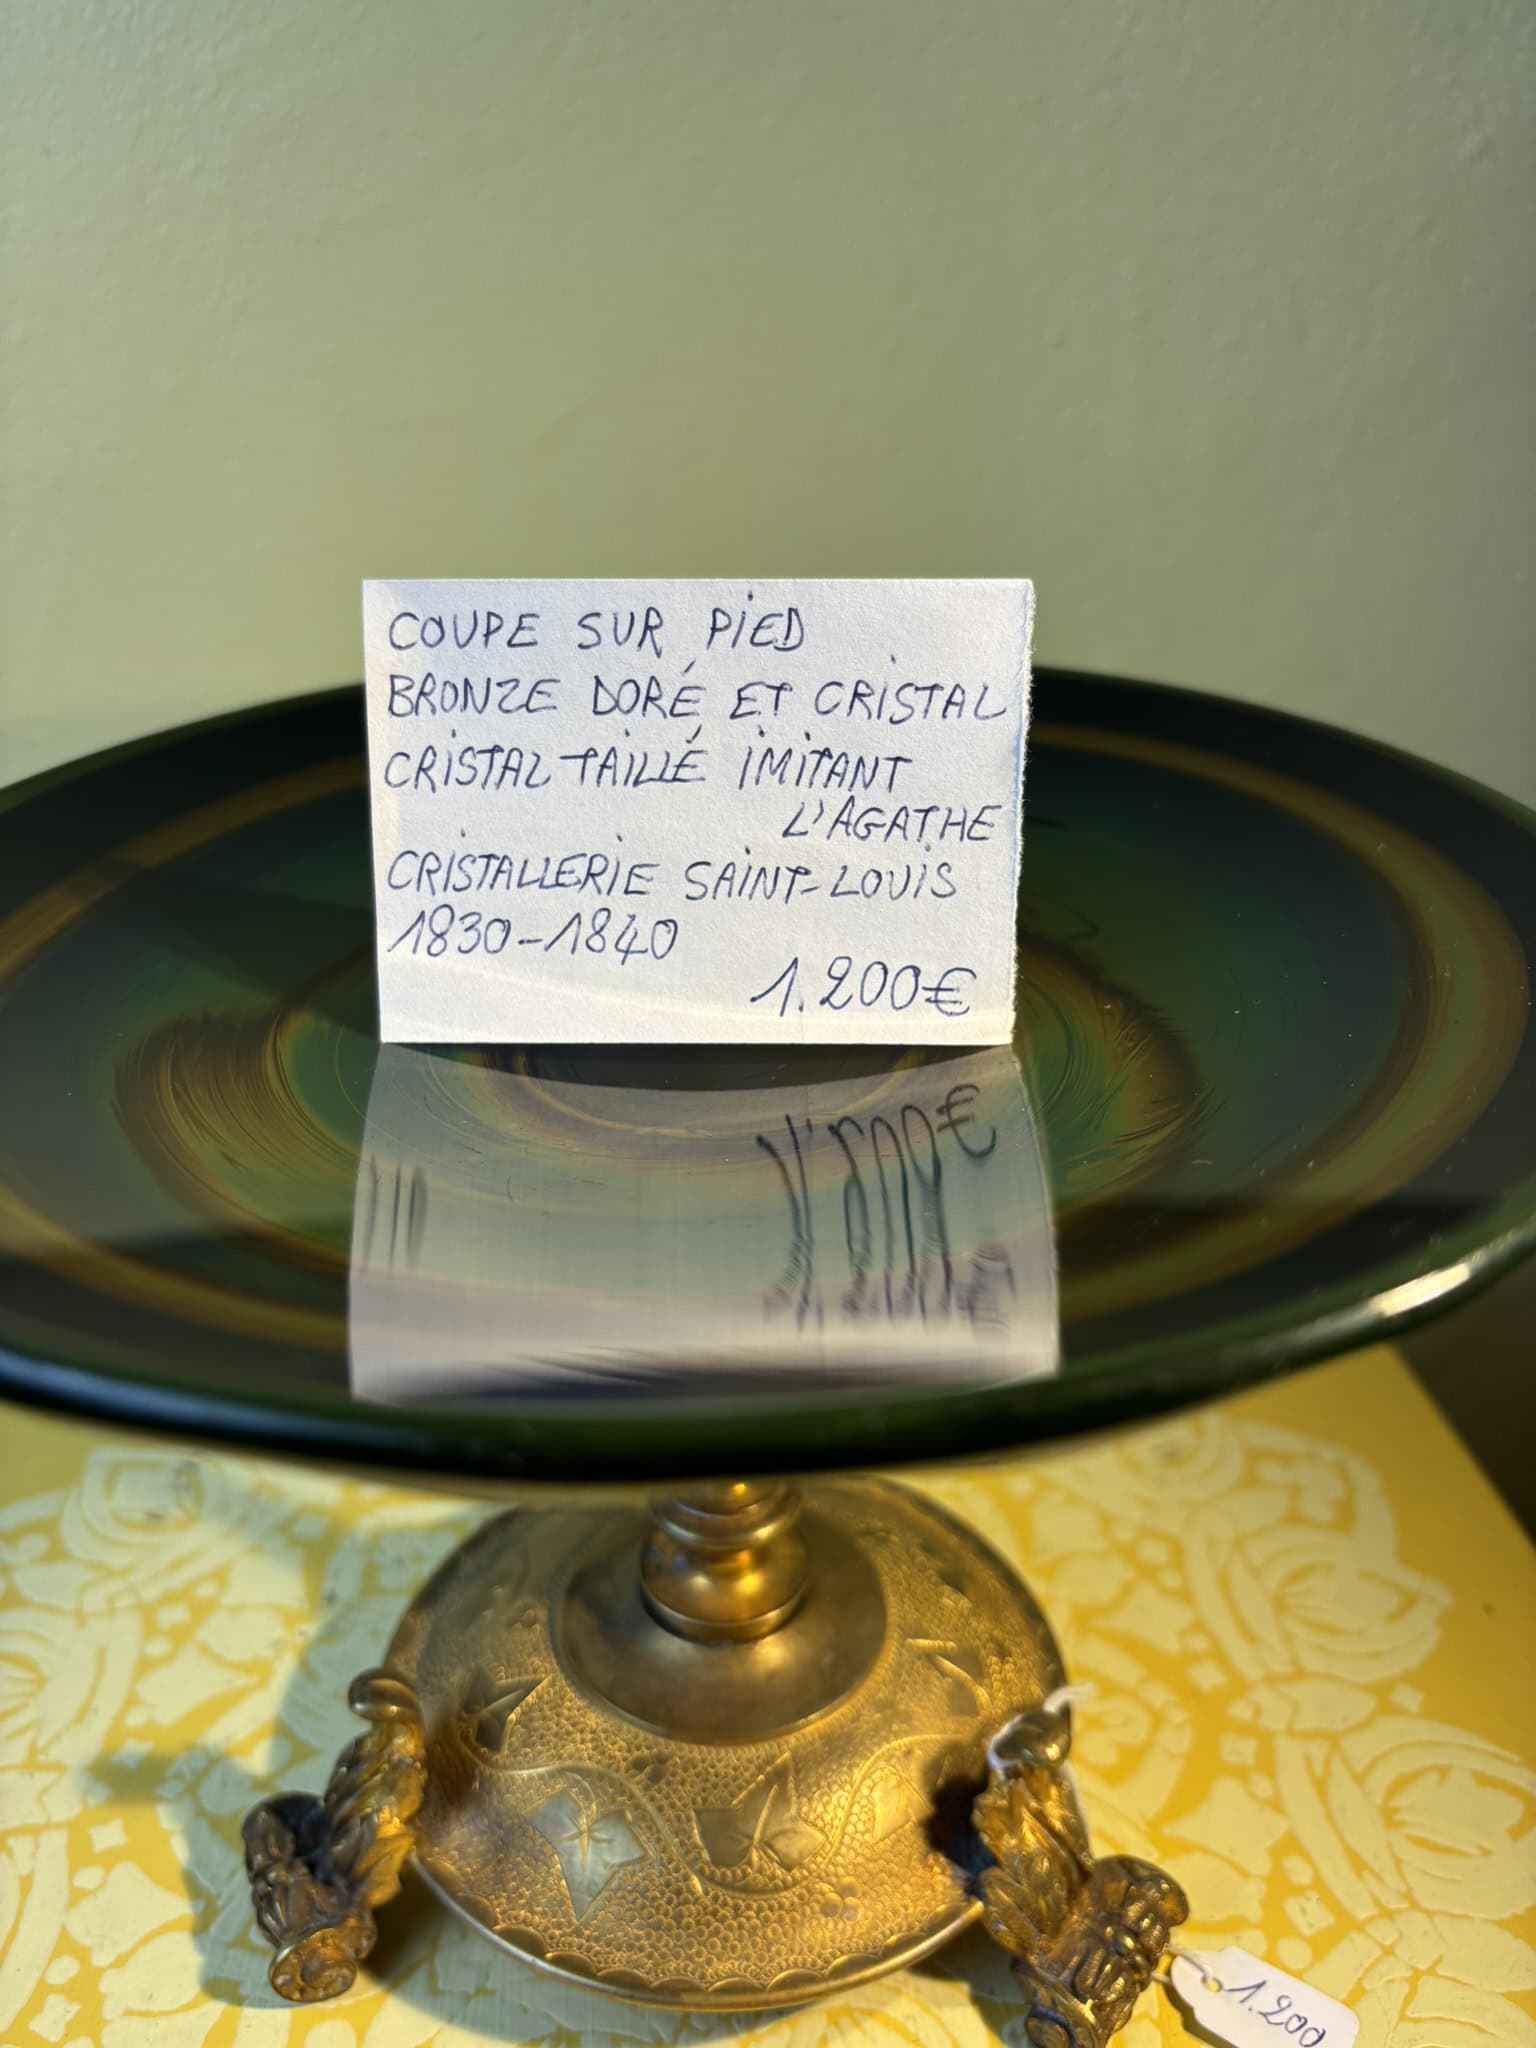 COUPE SUR PIED
BRONZE DORÉ ET CRISTAL
CRISTAL TAILLÉ IMITANT
L'AGATHE
CRISTALLERIE SAINT-LOUIS
1830-1840
1.200€
1.200